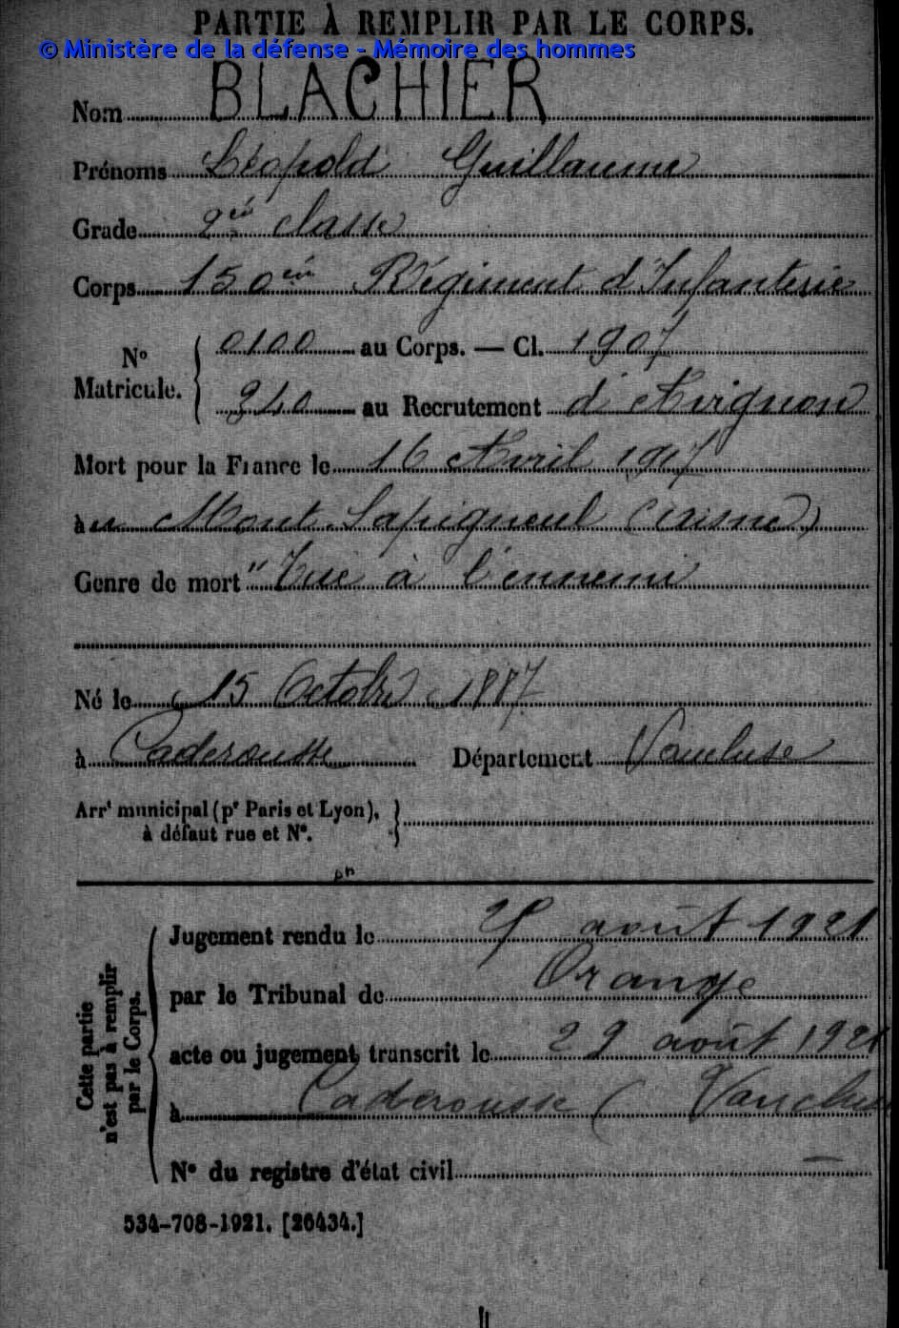 PARTIE À REMPLIR PAR LE CORPS.
© Ministère de la défense - Mémoire des hommes
Nom BLACHIER
Prénoms Léopold Guillaume
Grade 2è classe
Corps 150è Régiment d'Infanterie
No Matricule. { 0100 au Corps. — Cl. 1907
940 au Recrutement d'Avignon
Mort pour la France le 16 Avril 1917
à u Mont Sapigneul (Aisne)
Genre de mort "Tué à l'ennemi
Né le 15 Octobre 1887
à Caderousse Département Vaucluse
Arrt municipal (pr Paris et Lyon), }
à défaut rue et No.
Cette partie n'est pas à remplir par le Corps.
Jugement rendu le août 1921
par le Tribunal de Orange
acte ou jugement transcrit le 29 août 1921
à Caderousse ( Vaucluse
No du registre d'état civil —
534-708-1921. [26434.]